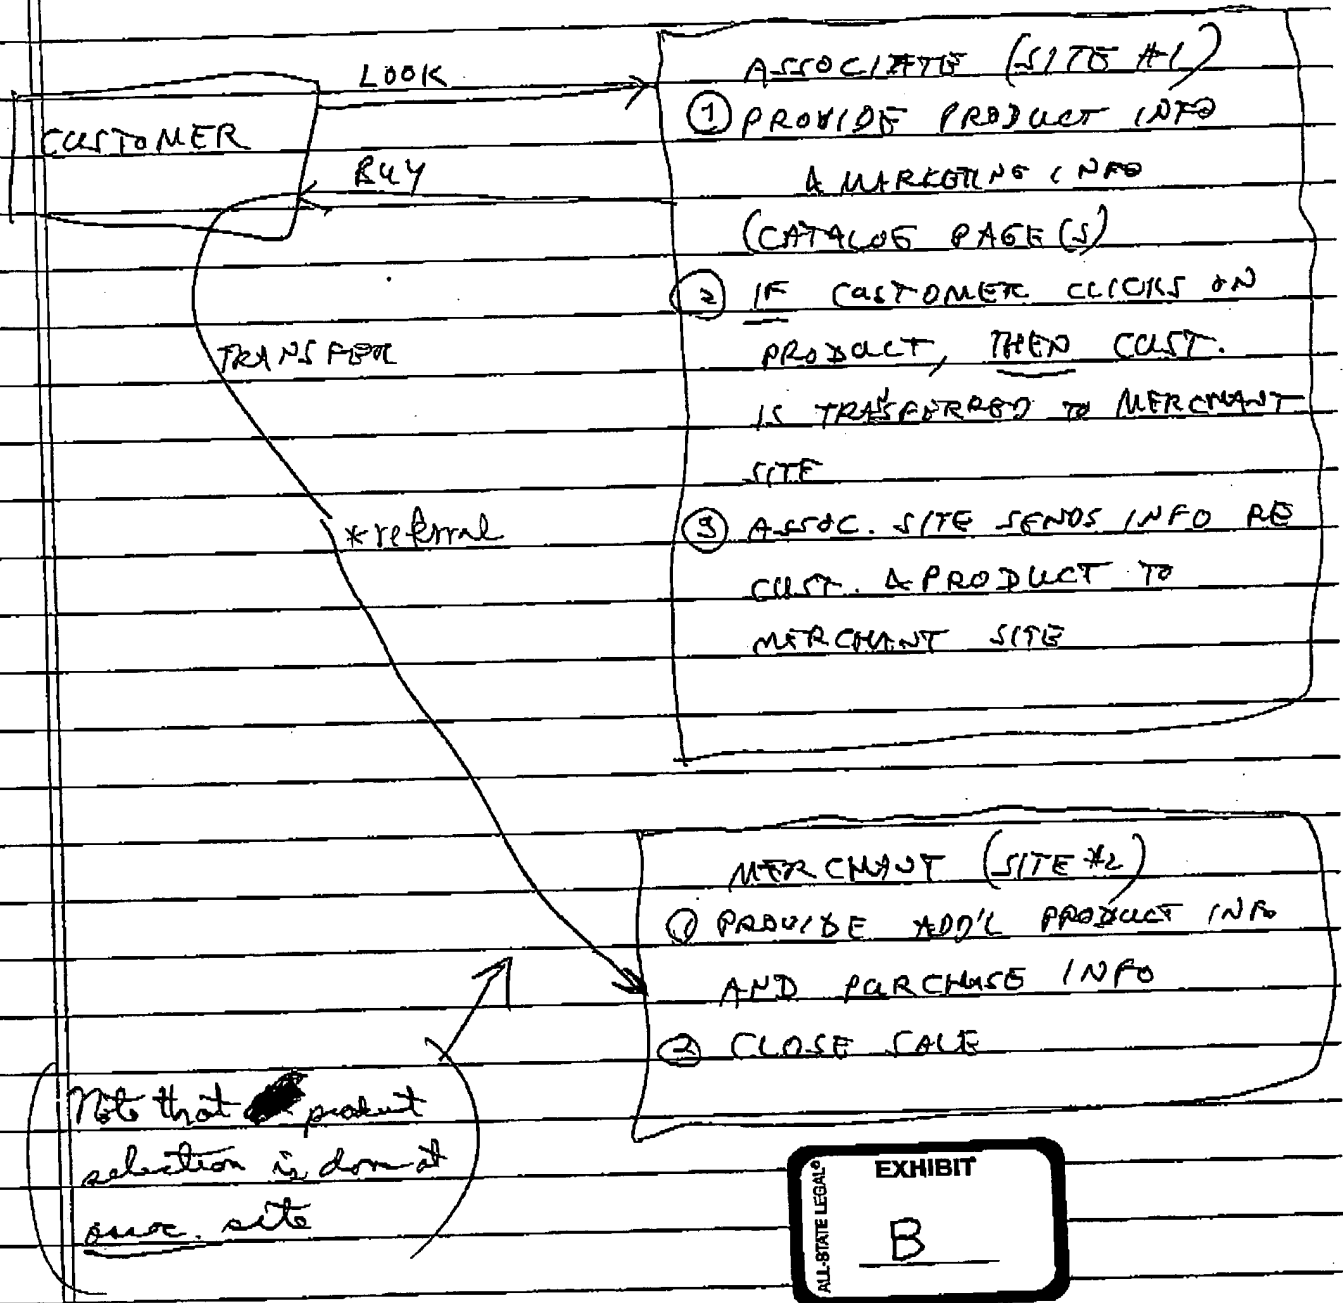 LOOK
CUSTOMER
BUY
TRANSFER
*referral
ASSOCIATE (SITE #1)
① PROVIDE PRODUCT INFO
& MARKETING INFO
(CATALOG PAGE(S)
② IF CUSTOMER CLICKS ON
PRODUCT, THEN CUST.
IS TRANSFERRED TO MERCHANT
SITE
③ ASSOC. SITE SENDS INFO RE
CUST. & PRODUCT TO
MERCHANT SITE
MERCHANT (SITE #2)
① PROVIDE ADD'L PRODUCT INFO
AND PURCHASE INFO
② CLOSE SALE
Note that product
selection is done at
assoc. site
EXHIBIT
B
ALL-STATE LEGAL®